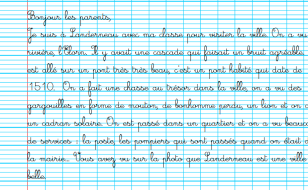 Bonjour les parents,
Je suis à Landerneau avec ma classe pour visiter la ville. On a vu
rivière, l'Elorn. Il y avait une cascade qui faisait un bruit agréable.
est allé sur un pont très très beau, c'est un pont habité qui date de
1510. On a fait une chasse au trésor dans la ville, on a vu des
gargouilles en forme de mouton, de bonhomme perdu, un lion et on a
un cadran solaire. On est passé dans un quartier et on a vu beauco
de services : la poste, les pompiers qui sont passés quand on était à
la mairie... Vous avez vu sur la photo que Landerneau est une ville
belle.